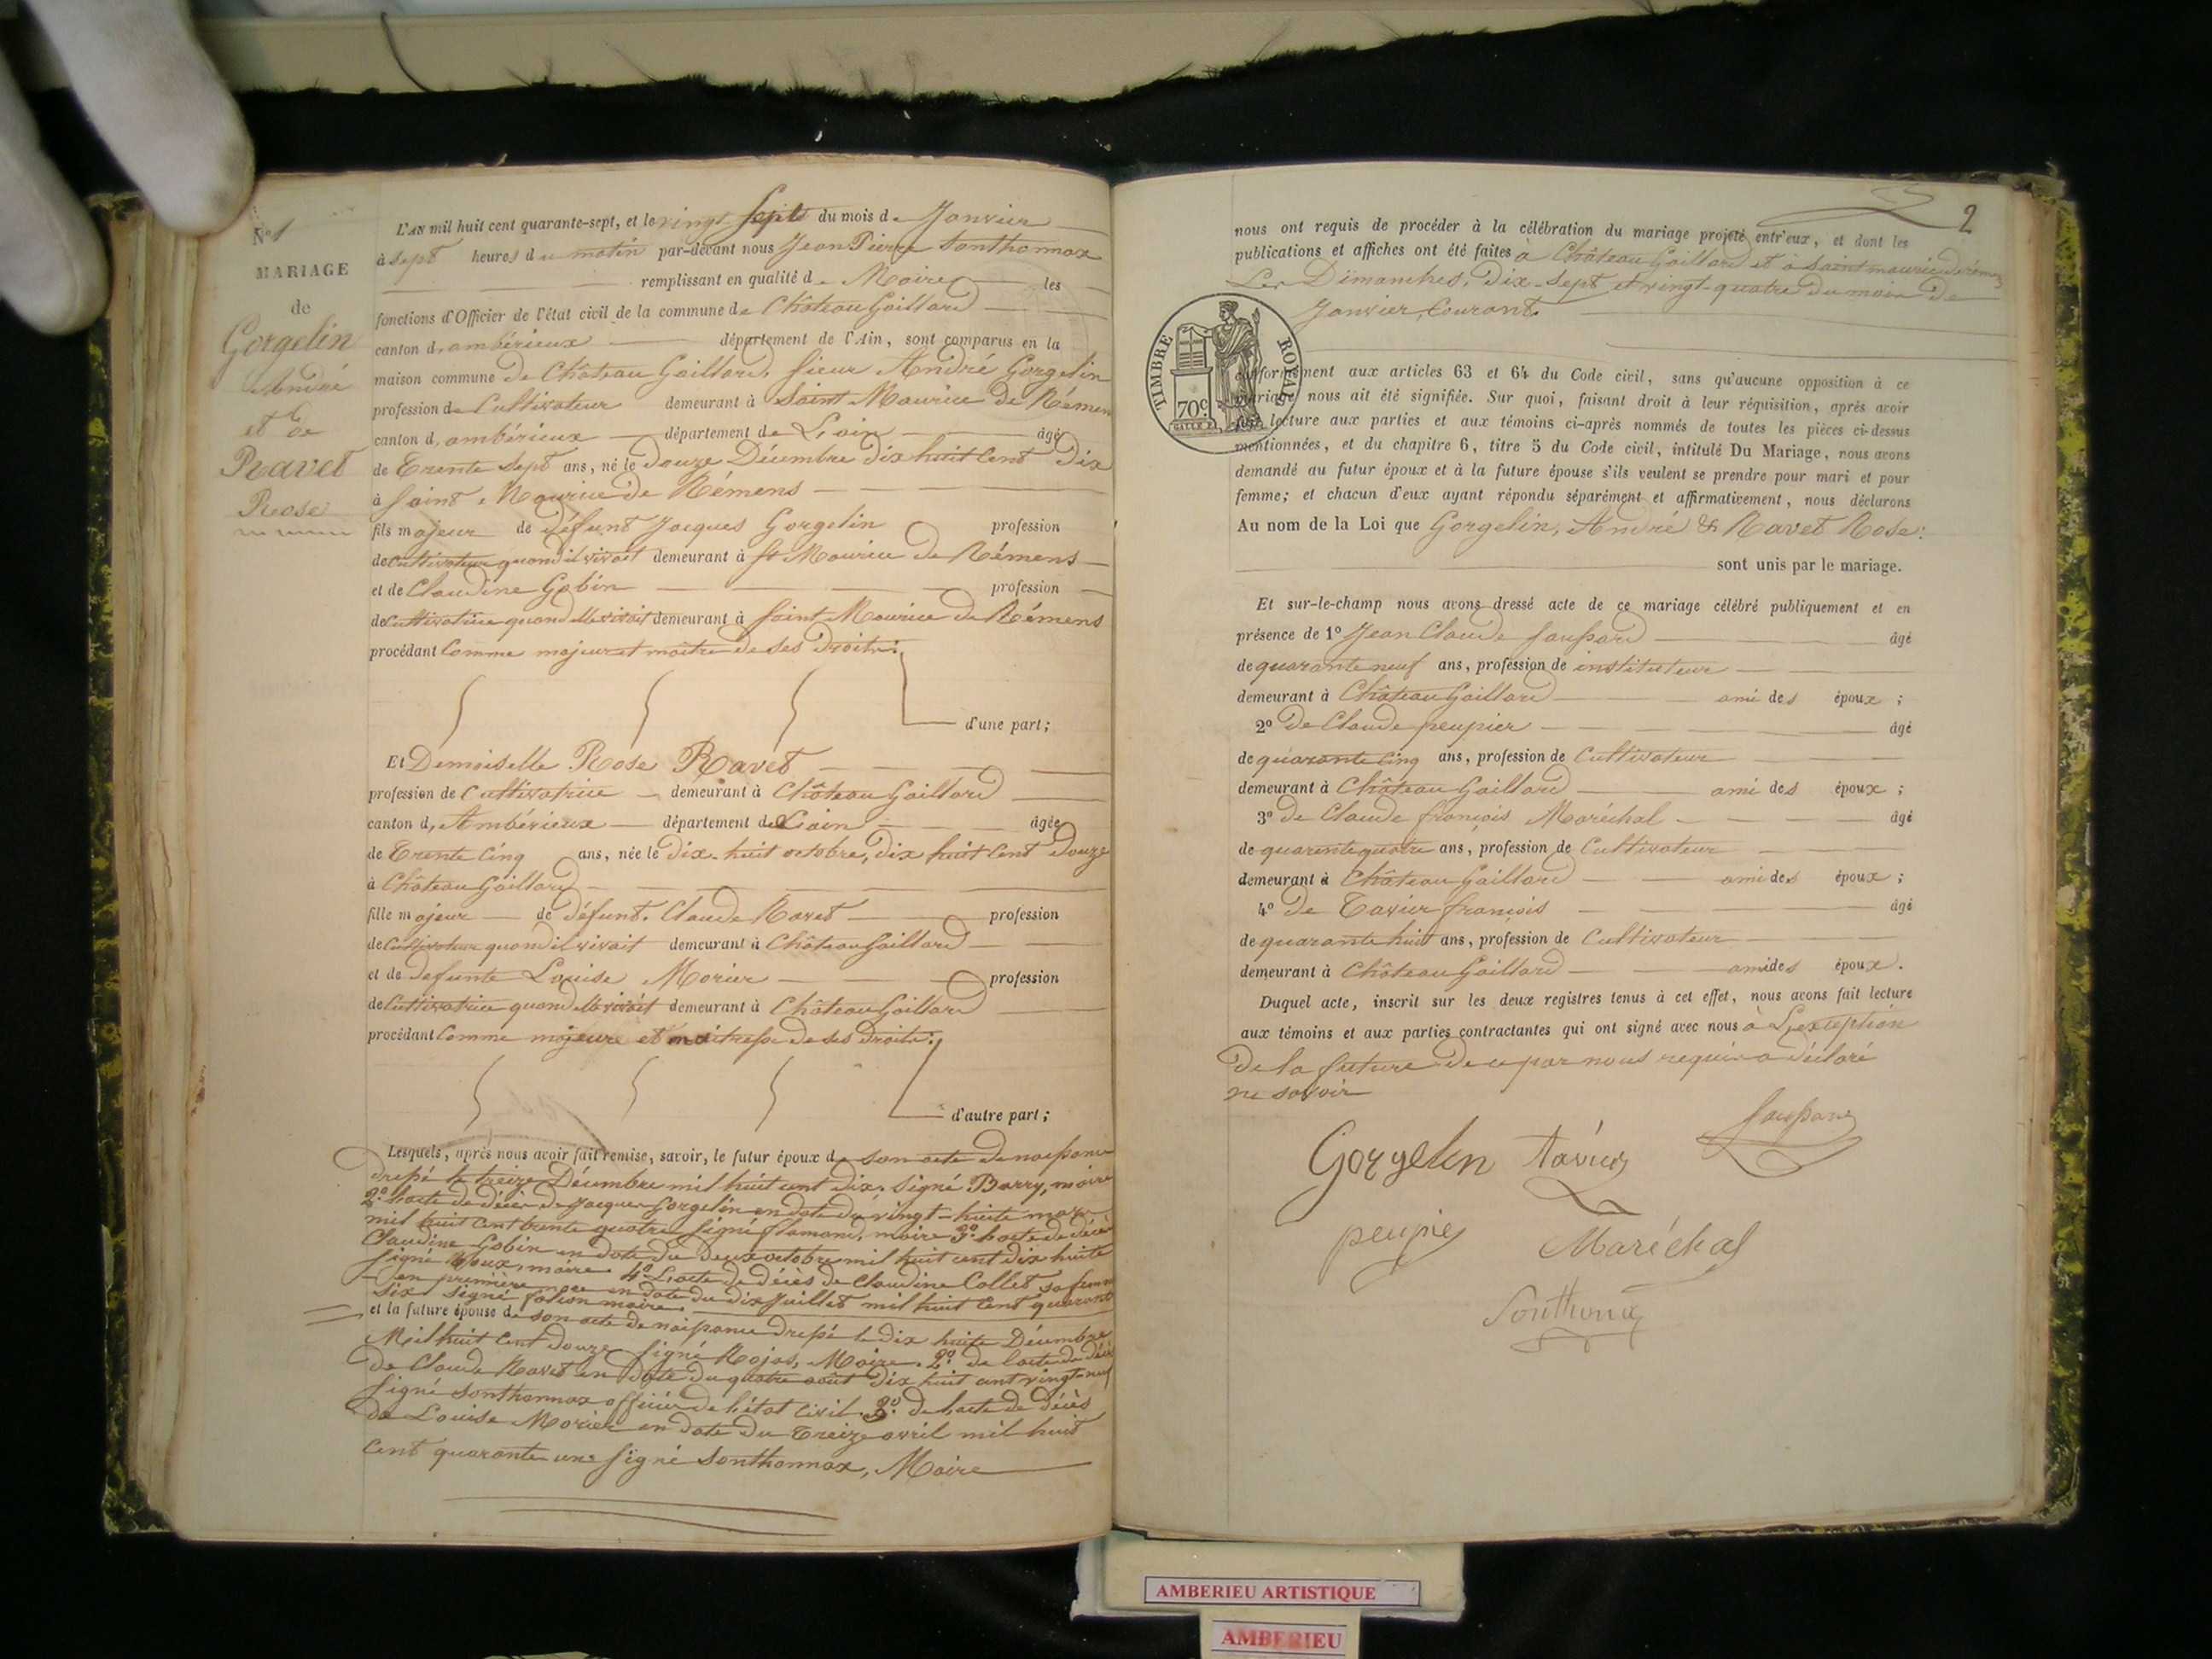 N° 1
MARIAGE
de
Gorgelin
André
et de
Ravet
Rose
L'AN mil huit cent quarante-sept, et le vingt sept du mois de Janvier
à sept heures du matin par-devant nous Jean Pierre Sonthonnax
remplissant en qualité de Maire les
fonctions d'Officier de l'état civil de la commune de Château Gaillard
canton d'ambérieux département de l'Ain, sont comparus en la
maison commune de Château Gaillard, sieur André Gorgelin
profession de Cultivateur demeurant à Saint Maurice de Rémens
canton d'ambérieux département de L'ain âgé
de Trente Sept ans, né le douze Décembre dix huit Cent Dix
à Saint Maurice de Rémens
fils majeur de défunt Jacques Gorgelin profession
de Cultivateur quand il vivait demeurant à St Maurice de Rémens
et de Claudine Gobin profession
de Cultivatrice quand elle vivait demeurant à Saint Maurice de Rémens
procédant Comme majeur et maître de ses Droits.
d'une part;
Et Demoiselle Rose Ravet
profession de Cultivatrice demeurant à Château Gaillard
canton d'Ambérieux département de L'ain âgée
de Trente Cinq ans, née le Dix-huit octobre, Dix huit Cent Douze
à Château Gaillard
fille majeure de défunt Claude Ravet profession
de Cultivateur quand il vivait demeurant à Château Gaillard
et de defunte Louise Morier profession
de Cultivatrice quand elle vivait demeurant à Château Gaillard
procédant Comme majeure et maitresse de ses droits.
d'autre part;
Lesquels, après nous avoir fait remise, savoir, le futur époux de son acte de naissance
dressé le treize Décembre mil huit cent dix, signé Barry, maire
2° l'acte de décès de Jacques Gorgelin en date du vingt-huite mars
mil huit Cent trente quatre signé flamand, maire 3° l'acte de décès
Claudine Gobin en date du deux octobre mil huit cent dix huite
signé maire. 4° L'acte de décès de Claudine Collet sa femme
en première noce en date du dix Juillet mil huit Cent quarante
six signé maire.
et la future épouse de son acte de naissance dressé le dix huite Décembre
Mil huit Cent douze signé Rojas, Maire. 2° de l'acte de décès
de Claude Ravet en date du quatre août Dix huit cent vingt-neuf
signé Sonthonnax officier de l'état Civil. 3° de l'acte de décès
de Louise Morier en date du Treize avril mil huit
Cent quarante une signé Sonthonnax, Maire
2
nous ont requis de procéder à la célébration du mariage projeté entr'eux, et dont les
publications et affiches ont été faites à Château Gaillard et à Saint maurice de rémens
Les Dimanches, Dix-Sept et vingt-quatre du mois de
Janvier, Courant.
TIMBRE ROYAL
70c
conformément aux articles 63 et 64 du Code civil, sans qu'aucune opposition à ce
mariage nous ait été signifiée. Sur quoi, faisant droit à leur réquisition, après avoir
fait lecture aux parties et aux témoins ci-après nommés de toutes les pièces ci-dessus
mentionnées, et du chapitre 6, titre 5 du Code civil, intitulé Du Mariage, nous avons
demandé au futur époux et à la future épouse s'ils veulent se prendre pour mari et pour
femme; et chacun d'eux ayant répondu séparément et affirmativement, nous déclarons
Au nom de la Loi que Gorgelin, André & Ravet Rose:
sont unis par le mariage.
Et sur-le-champ nous avons dressé acte de ce mariage célébré publiquement et en
présence de 1° Jean Claude Saussard âgé
de quarante neuf ans, profession de instituteur
demeurant à Château Gaillard ami des époux;
2° De Claude peupier âgé
de quarante cinq ans, profession de Cultivateur
demeurant à Château Gaillard ami des époux;
3° de Claude françois Maréchal âgé
de quarente quatre ans, profession de Cultivateur
demeurant à Château Gaillard ami des époux;
4° De Tavier françois âgé
de quarante huit ans, profession de Cultivateur
demeurant à Château Gaillard ami des époux.
Duquel acte, inscrit sur les deux registres tenus à cet effet, nous avons fait lecture
aux témoins et aux parties contractantes qui ont signé avec nous à L'exception
De la future de ce par nous requise a déclaré
ne savoir
Saussard
Gorgelin Tavier
peupier
Maréchal
Sonthonax
AMBERIEU ARTISTIQUE
AMBERIEU